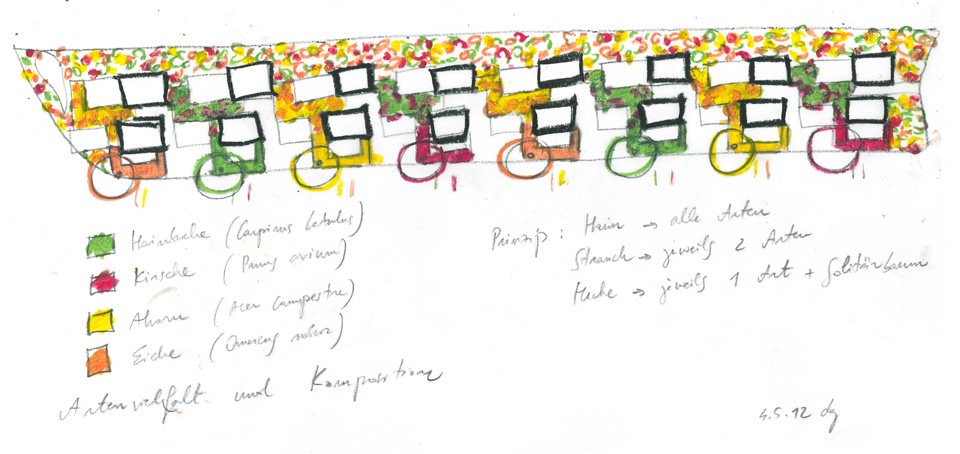 Hainbuche (Carpinus betulus)
Kirsche (Prunus avium)
Ahorn (Acer campestre)
Eiche (Quercus robur)
Artenvielfalt und Komposition
Prinzip: Hain → alle Arten
Strauch → jeweils 2 Arten
Hecke → jeweils 1 Art + Solitärbaum
4.5.12 dg